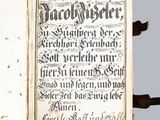 Jacob Zueler
Zu Gugisperg der
Kirchhori Erlenbach:
Gott verleihe mir
hier zu seinem H. Geist
Gnad und segen, und nach
dieser Zeit das Ewig lebe
Amen.